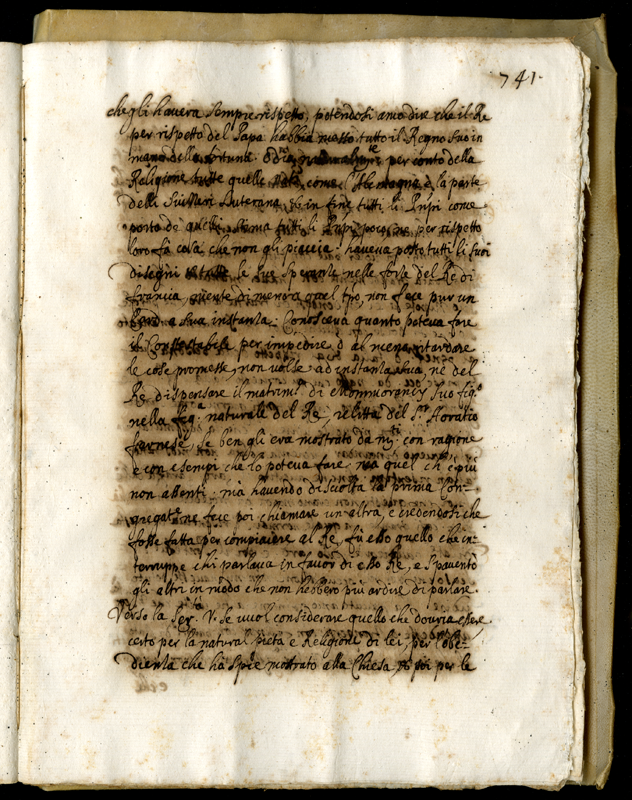 741.
che gli havera sempre rispetto, potendosi anco dire che il Re
per rispetto del Papa habbia messo tutto il Regno suo in
mano della fortuna. per conto della
Religione tutte quelle come l'Alemagna, e la parte
delli Suizzari Luterana, et in fine tutti li Prĩpi come
porto de stima tutti li Prĩpi per rispetto
loro fà cosa che non gli piaccia. haveva posto tutti li suoi
disegni le sue speranze nelle forze del Re di
francia, niente di meno a quel tpo, non fece pur un
a sua instanza. Conosceva quanto poteva fare
il Contestabile per impedire, ò al meno ritardare
le cose promesse, non volse ad instanza sua, ne del
Re dispensare il matrim.º di Mommorenzy suo fig.º
nella fig.ª naturale del Re, relitta del S.r Horatio
farnese, se ben gli era mostrato da m.ti con ragione
e con esempi che lo poteva fare, mà quel ch'è più
non assentì. mà havendo disciolta la prima Con-
gregat.ne ne fece poi chiamare un altra, e credendosi che
fosse fatta per compiacere al Re, fù esso quello che in-
terruppe chi parlava in favor di esso Re, e spaventò
gli altri in modo che non hebbero più ardire di parlare.
Verso la Ser.tà V. se vuol considerare quello che dovria essere
certo per la natural pietà e Religione di lei, per l'obe-
dienza che hà spre mostrato alla Chiesa poi per le